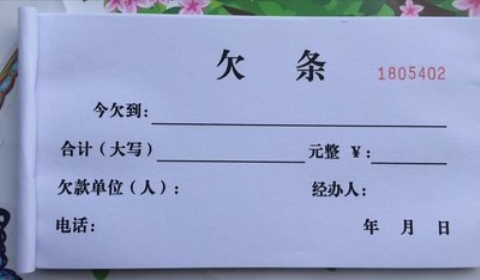 欠 条 1805402
今欠到:
合计（大写） 元整 ¥:
欠款单位（人）: 经办人:
电话: 年 月 日